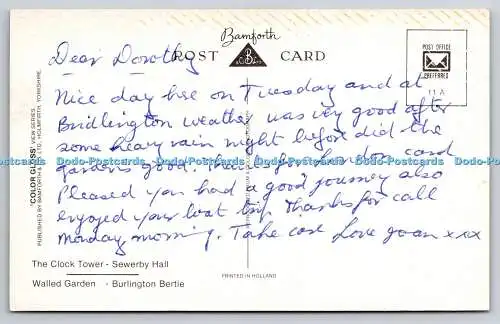 Bamforth
POST CARD
B
POST OFFICE
PREFERRED
11 A
Dear Dorothy
Nice day here on Tuesday and at
Bridlington weather was very good after
some heavy rain night before did the
gardens good. card
Pleased you had a good journey also
enjoyed your boat trip. Thanks for call
Monday morning. Take care Love Joan xxx
"COLOR GLOSS" VIEW SERIES
PUBLISHED BY BAMFORTH & CO. LTD., HOLMFIRTH, YORKSHIRE.
Do-Postcards Do-Postcards Do-Postcards Do-Postcards Do-Postcards
The Clock Tower - Sewerby Hall
Walled Garden - Burlington Bertie
PRINTED IN HOLLAND